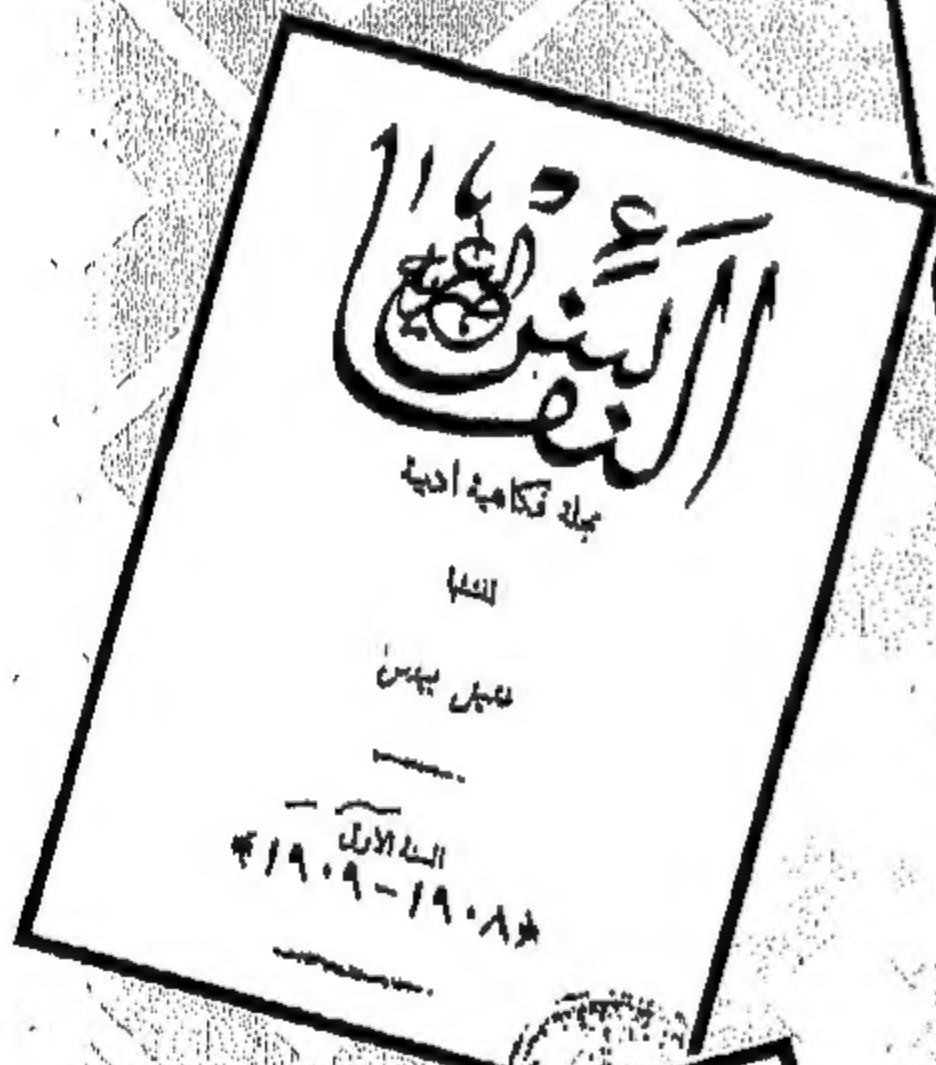 النفائس
مجلة فكاهية ادبية
لمنشئها
خليل بيدس
السنة الاولى
١٩٠٨ – ١٩٠٩